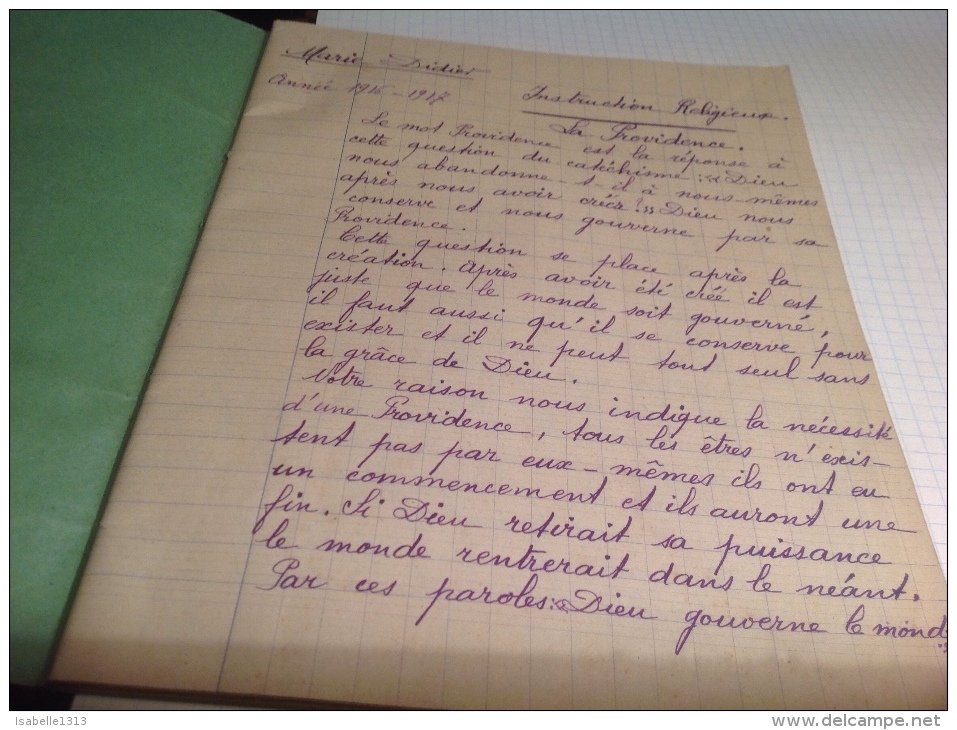 Marie Didier
Année 1916-1917
Instruction Religieuse.
La Providence.
Le mot Providence est la réponse à
cette question du catéchisme : « Dieu
nous abandonne-t-il à nous-mêmes
après nous avoir créés ? » Dieu nous
conserve et nous gouverne par sa
Providence.
Cette question se place après la
création. Après avoir été créé il est
juste que le monde soit gouverné,
il faut aussi qu'il se conserve pour
exister et il ne peut tout seul sans
la grâce de Dieu.
Notre raison nous indique la nécessité
d'une Providence, tous les êtres n'exis-
tent pas par eux-mêmes ils ont eu
un commencement et ils auront une
fin. Si Dieu retirait sa puissance
le monde rentrerait dans le néant.
Par ces paroles : « Dieu gouverne le monde »
Isabelle1313
www.delcampe.net